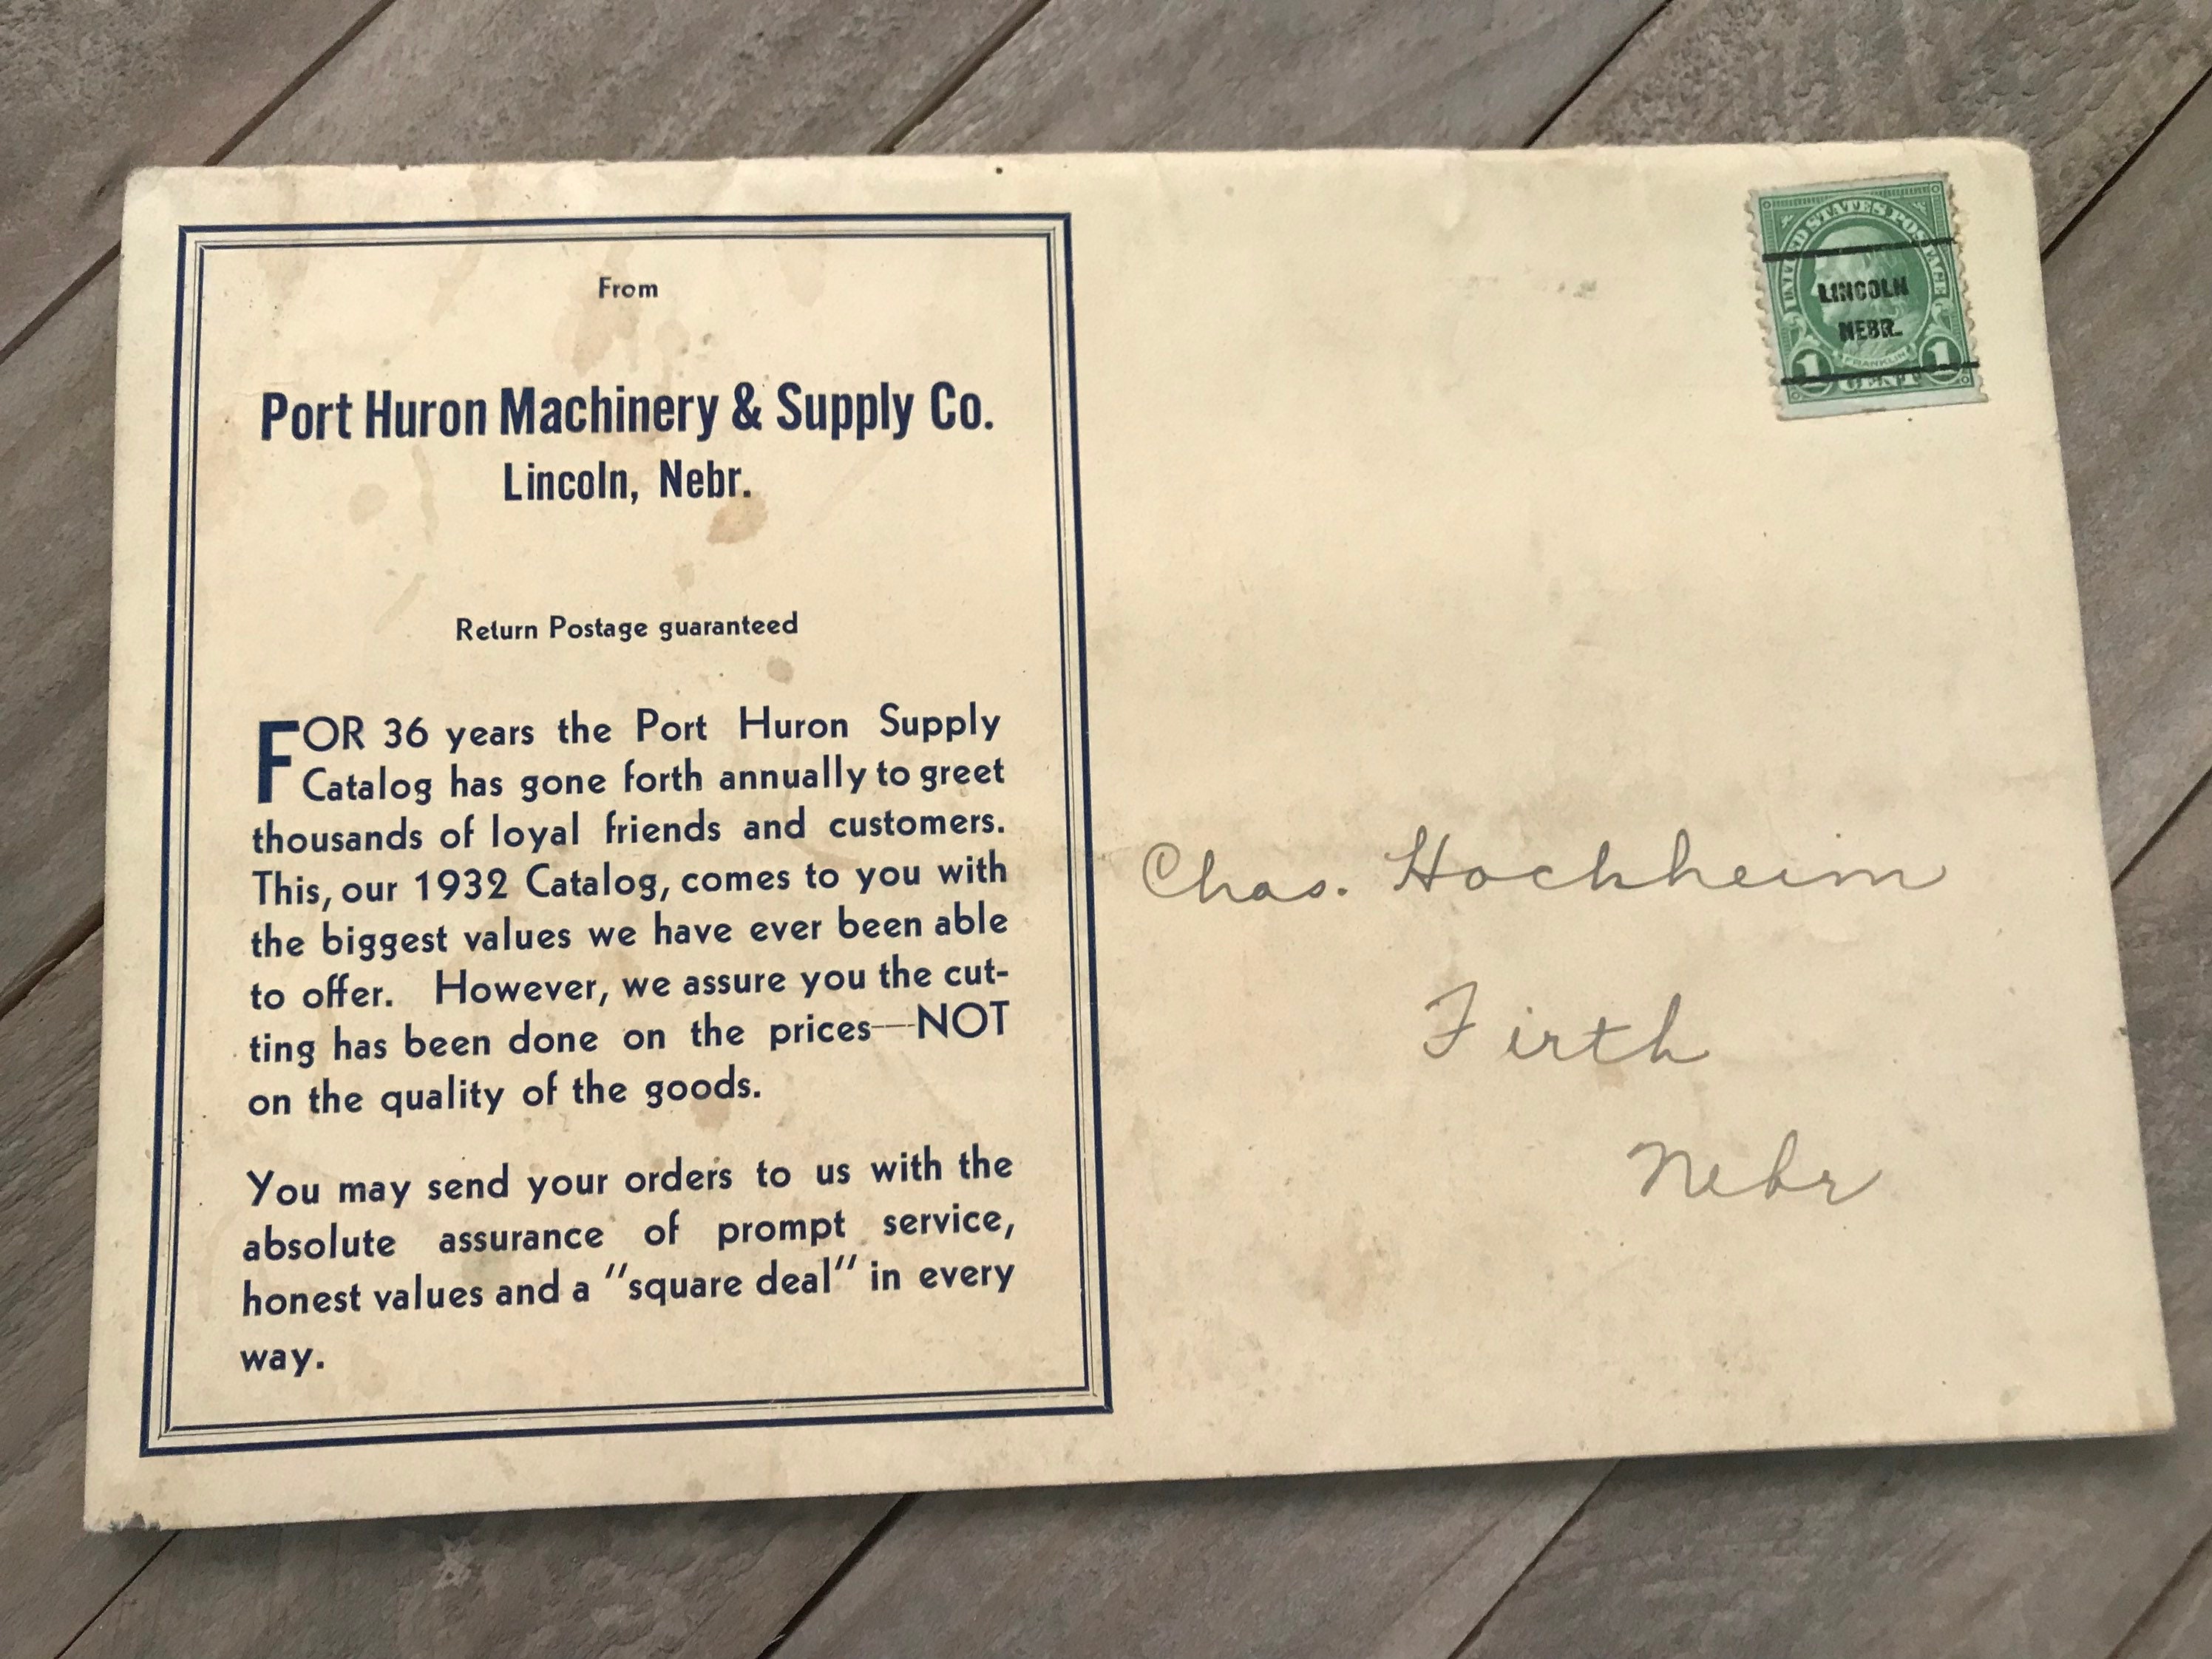 From
Port Huron Machinery & Supply Co.
Lincoln, Nebr.
Return Postage guaranteed
FOR 36 years the Port Huron Supply
Catalog has gone forth annually to greet
thousands of loyal friends and customers.
This, our 1932 Catalog, comes to you with
the biggest values we have ever been able
to offer. However, we assure you the cut-
ting has been done on the prices—NOT
on the quality of the goods.
You may send your orders to us with the
absolute assurance of prompt service,
honest values and a "square deal" in every
way.
UNITED STATES POSTAGE
LINCOLN
NEBR.
FRANKLIN
1 CENT 1
Chas. Hockheim
Firth
Nebr